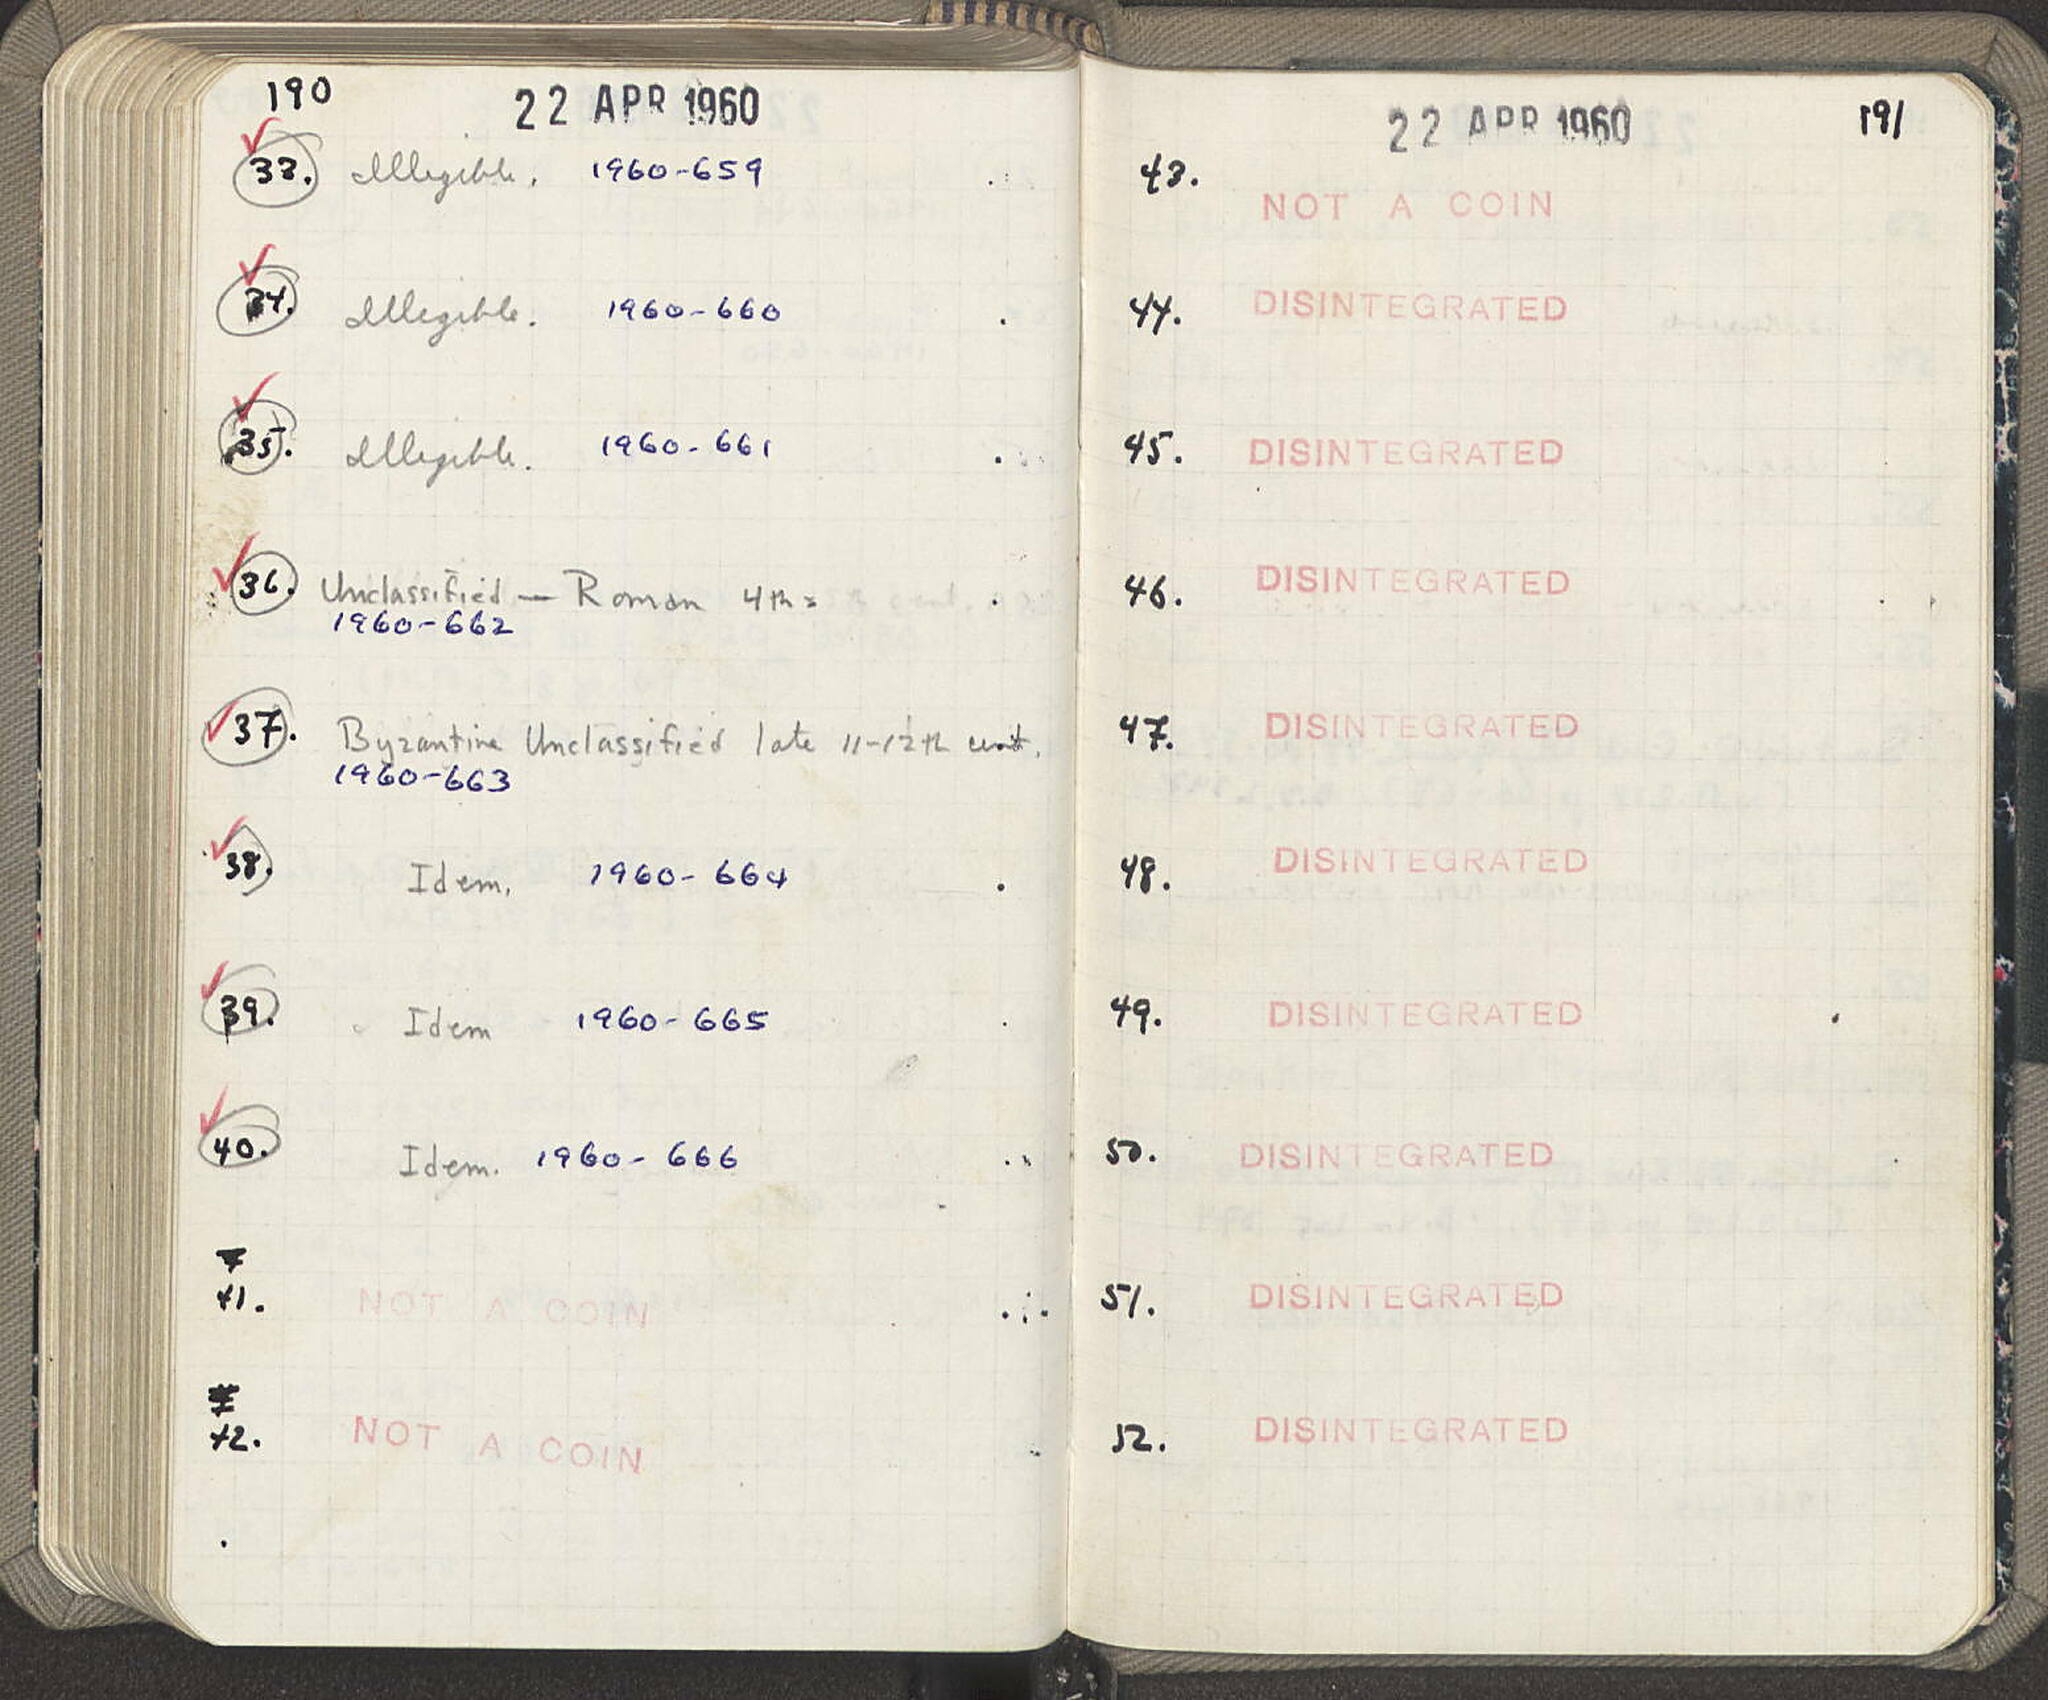 190
22 APR 1960
33. Illegible. 1960-659
34. Illegible. 1960-660
35. Illegible. 1960-661
36. Unclassified — Roman 4th
1960-662
37. Byzantine Unclassified late 11-12th cent.
1960-663
38. Idem. 1960-664
39. Idem 1960-665
40. Idem. 1960-666
41. NOT A COIN
42. NOT A COIN
22 APR 1960
191
43.
NOT A COIN
44. DISINTEGRATED
45. DISINTEGRATED
46. DISINTEGRATED
47. DISINTEGRATED
48. DISINTEGRATED
49. DISINTEGRATED
50. DISINTEGRATED
51. DISINTEGRATED
52. DISINTEGRATED